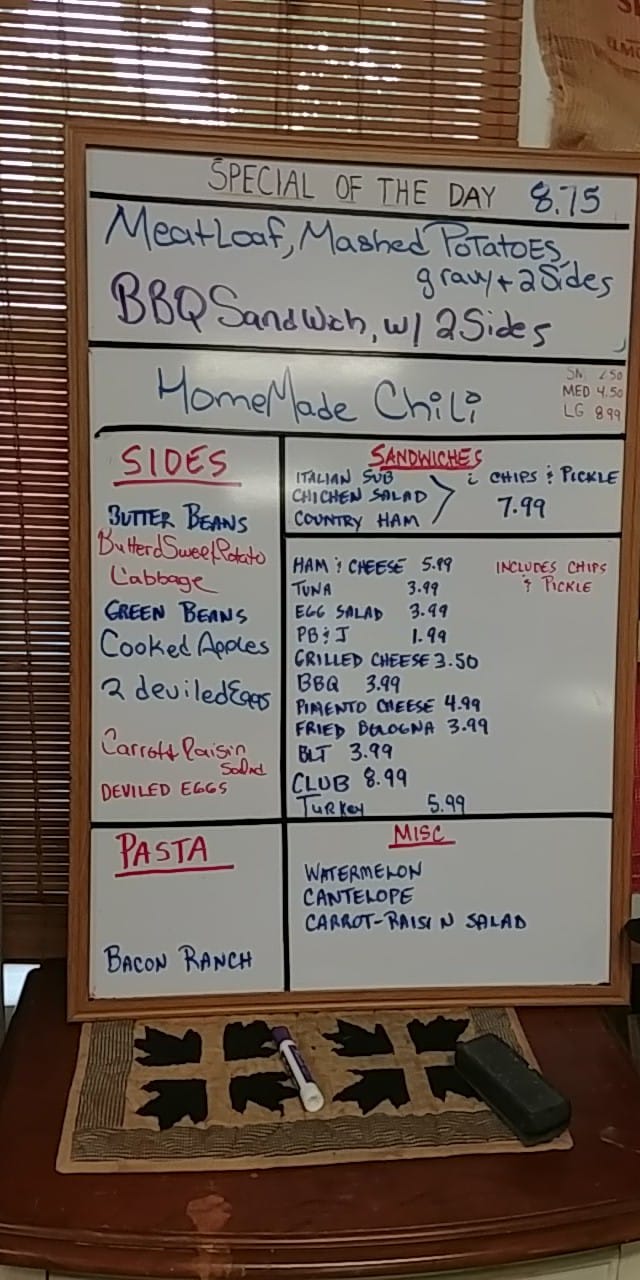 SPECIAL OF THE DAY 8.75
MeatLoaf, Mashed PoTaToES,
gravy + 2 Sides
BBQ SandWich, w/ 2 Sides
HomeMade ChiLi
SM 2.50
MED 4.50
LG 8.99
SIDES
BUTTER BEANS
ButterdSweetPotato
Cabbage
GREEN BEANS
Cooked Apples
2 deviledEggs
Carrot & Raisin
Salad
DEVILED EGGS
SANDWICHES
ITALIAN SUB
CHICHEN SALAD
COUNTRY HAM
& CHIPS & PICKLE
7.99
HAM & CHEESE 5.99
TUNA 3.99
EGG SALAD 3.99
PB & J 1.99
GRILLED CHEESE 3.50
BBQ 3.99
PIMENTO CHEESE 4.99
FRIED BOLOGNA 3.99
BLT 3.99
CLUB 8.99
TURKEY 5.99
INCLUDES CHIPS
& PICKLE
PASTA
BACON RANCH
MISC
WATERMELON
CANTELOPE
CARROT-RAISIN SALAD